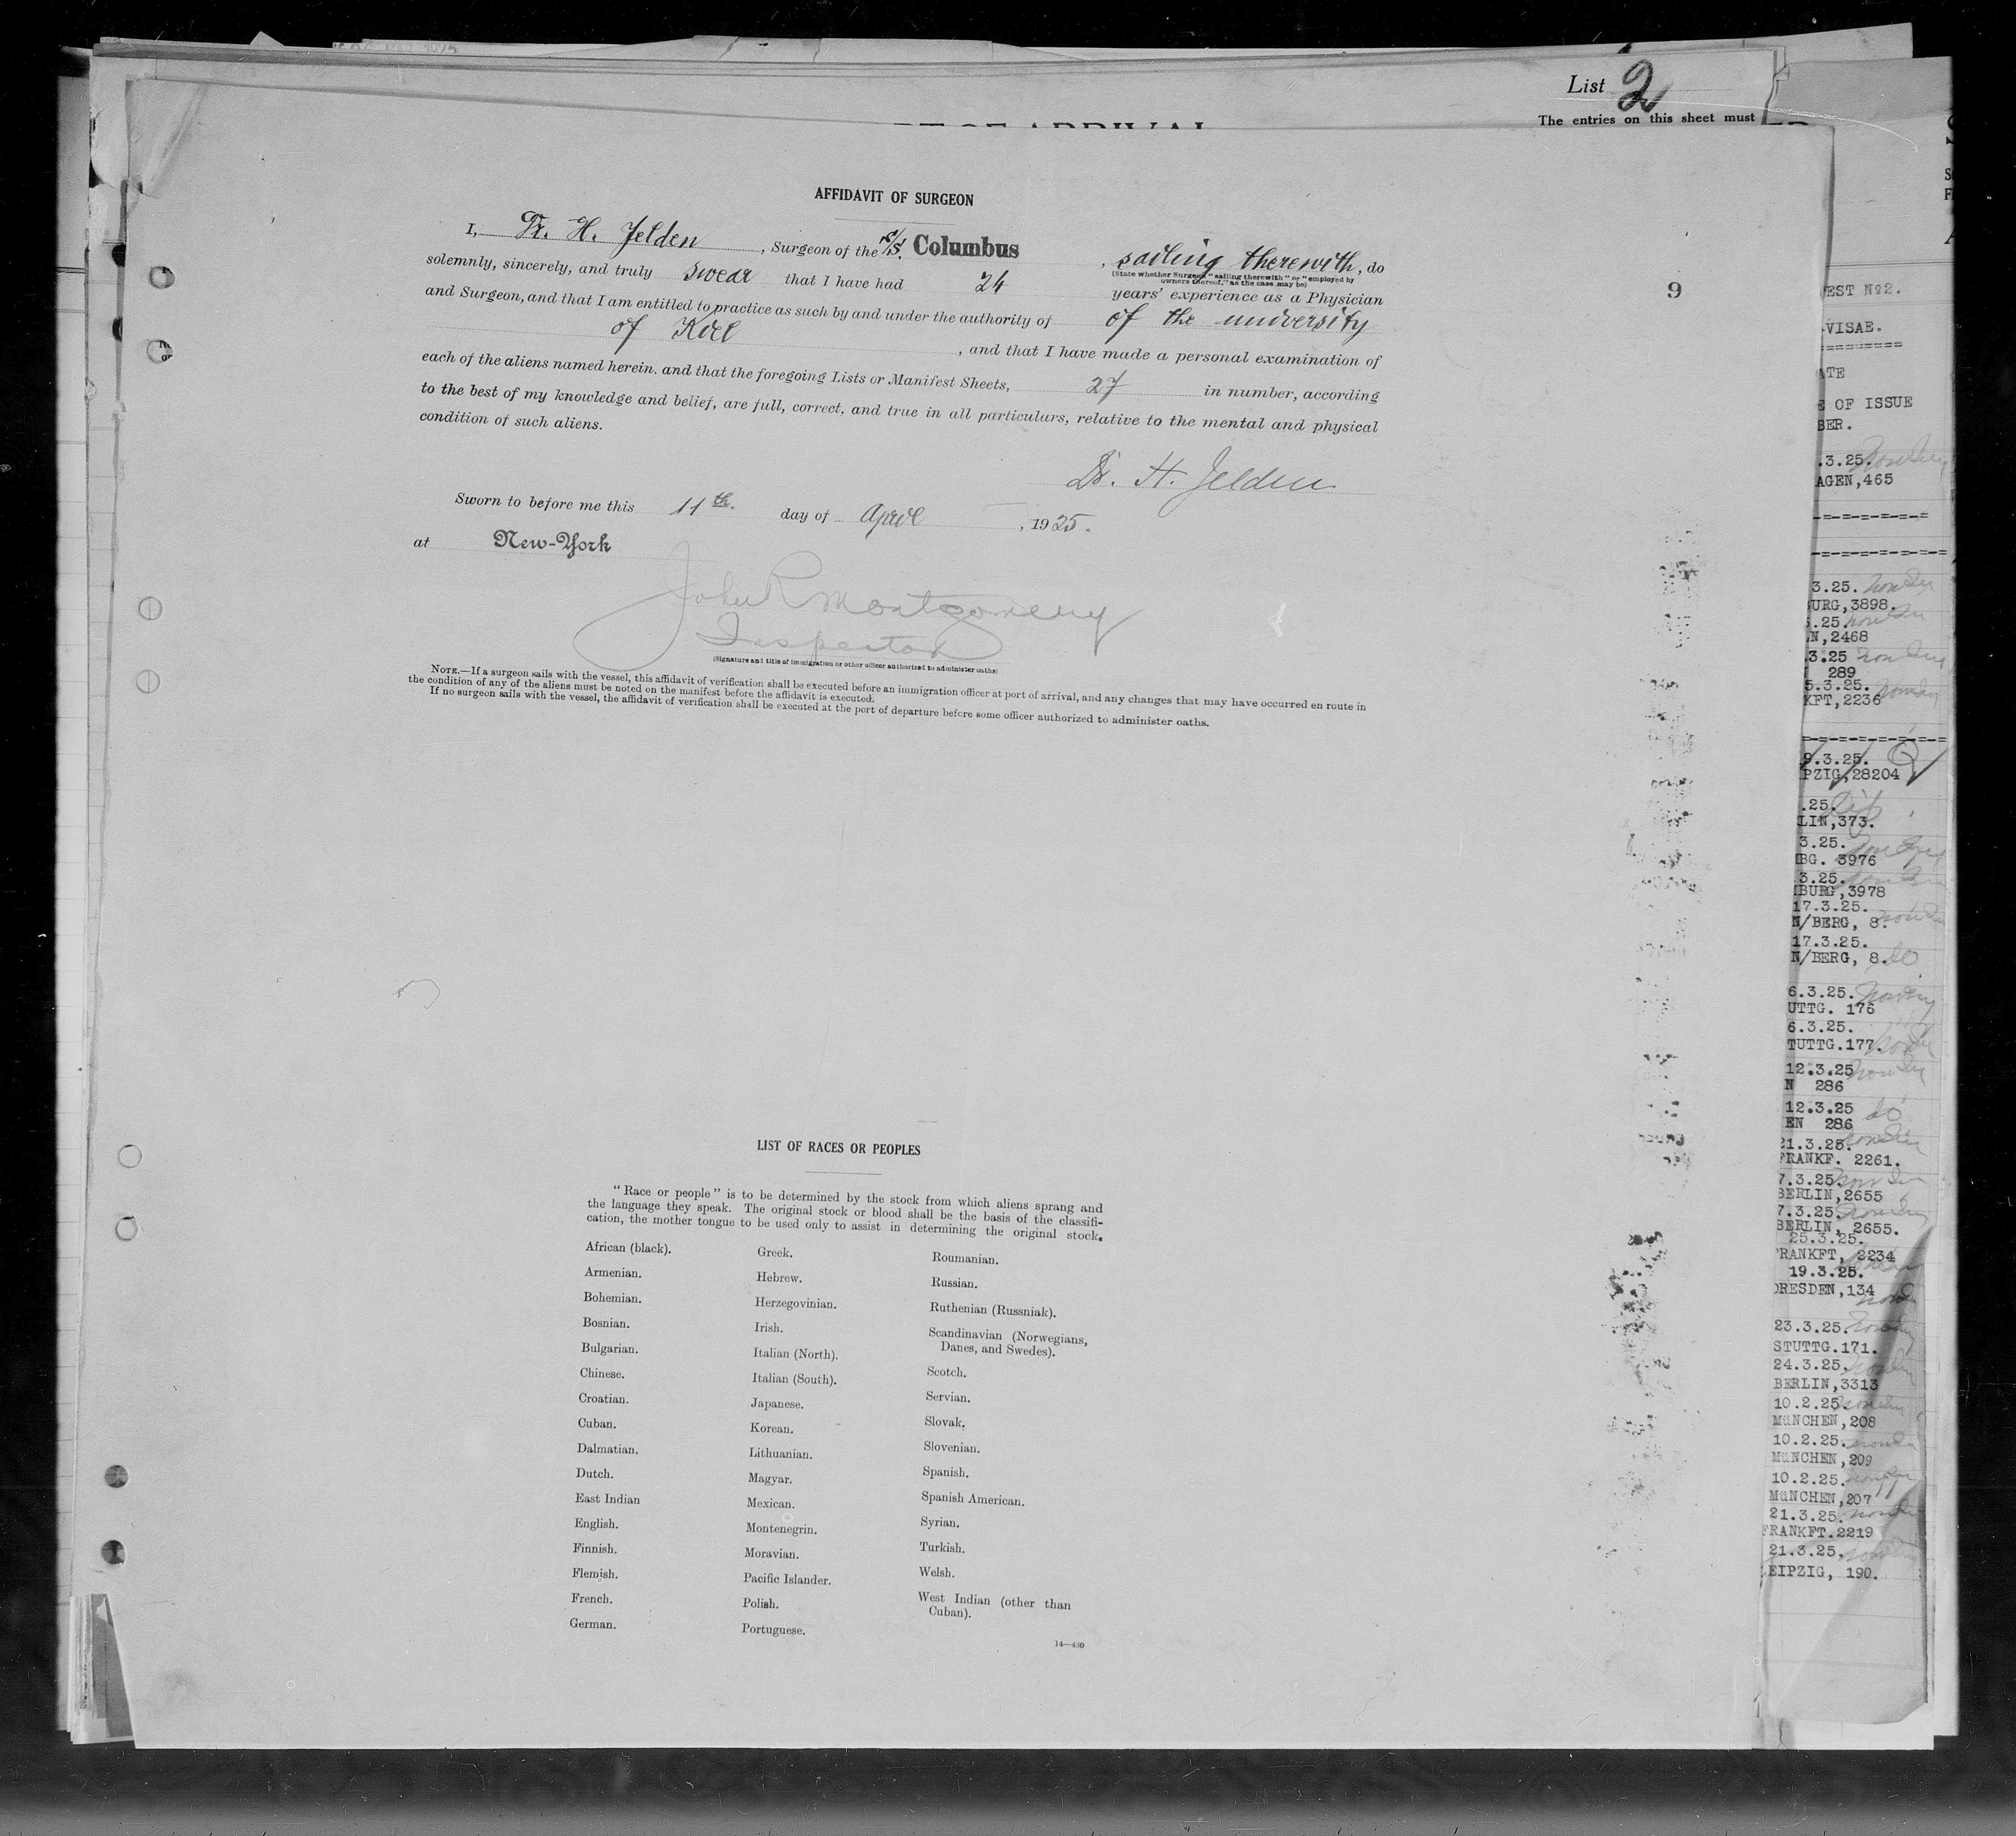 List 2
The entries on this sheet must
AFFIDAVIT OF SURGEON
I, Dr. H. Jelden, Surgeon of the S/S. Columbus, sailing therewith, do
(State whether Surgeon "sailing therewith" or "employed by
owners thereof," as the case may be)
solemnly, sincerely, and truly swear that I have had 24 years' experience as a Physician
9
and Surgeon, and that I am entitled to practice as such by and under the authority of of the university
of Kiel, and that I have made a personal examination of
each of the aliens named herein. and that the foregoing Lists or Manifest Sheets, 27 in number, according
to the best of my knowledge and belief, are full, correct, and true in all particulars, relative to the mental and physical
condition of such aliens.
Dr. H. Jelden
Sworn to before me this 11th. day of April, 1925.
at New-York
John R Montgomery
Inspector
(Signature and title of immigration or other officer authorized to administer oaths)
NOTE.—If a surgeon sails with the vessel, this affidavit of verification shall be executed before an immigration officer at port of arrival, and any changes that may have occurred en route in
the condition of any of the aliens must be noted on the manifest before the affidavit is executed.
If no surgeon sails with the vessel, the affidavit of verification shall be executed at the port of departure before some officer authorized to administer oaths.
LIST OF RACES OR PEOPLES
"Race or people" is to be determined by the stock from which aliens sprang and
the language they speak. The original stock or blood shall be the basis of the classifi-
cation, the mother tongue to be used only to assist in determining the original stock.
African (black).
Armenian.
Bohemian.
Bosnian.
Bulgarian.
Chinese.
Croatian.
Cuban.
Dalmatian.
Dutch.
East Indian
English.
Finnish.
Flemish.
French.
German.
Greek.
Hebrew.
Herzegovinian.
Irish.
Italian (North).
Italian (South).
Japanese.
Korean.
Lithuanian.
Magyar.
Mexican.
Montenegrin.
Moravian.
Pacific Islander.
Polish.
Portuguese.
Roumanian.
Russian.
Ruthenian (Russniak).
Scandinavian (Norwegians,
Danes, and Swedes).
Scotch.
Servian.
Slovak.
Slovenian.
Spanish.
Spanish American.
Syrian.
Turkish.
Welsh.
West Indian (other than
Cuban).
14—480
EST №2.
VISAE.
ATE
E OF ISSUE
BER.
.3.25.
AGEN,465
3.25.
BURG,3898.
.25.
N,2468
.3.25
289
5.3.25.
KFT,2236
9.3.25.
PZIG,28204
.25.
LIN,373.
3.25.
BG. 3976
3.25.
BURG,3978
17.3.25.
N/BERG, 8.
17.3.25.
N/BERG, 8. do
6.3.25.
UTTG. 176
6.3.25.
TUTTG.177.
12.3.25
N 286
12.3.25 do
EN 286
21.3.25.
FRANKF. 2261.
7.3.25
BERLIN,2655
7.3.25.
BERLIN, 2655.
25.3.25.
FRANKFT, 2234
19.3.25.
DRESDEN,134
23.3.25.
STUTTG.171.
24.3.25.
BERLIN,3313
10.2.25.
MüNCHEN,208
10.2.25.
MüNCHEN,209
10.2.25.
MüNCHEN,207
21.3.25.
FRANKFT.2219
21.3.25.
LEIPZIG, 190.